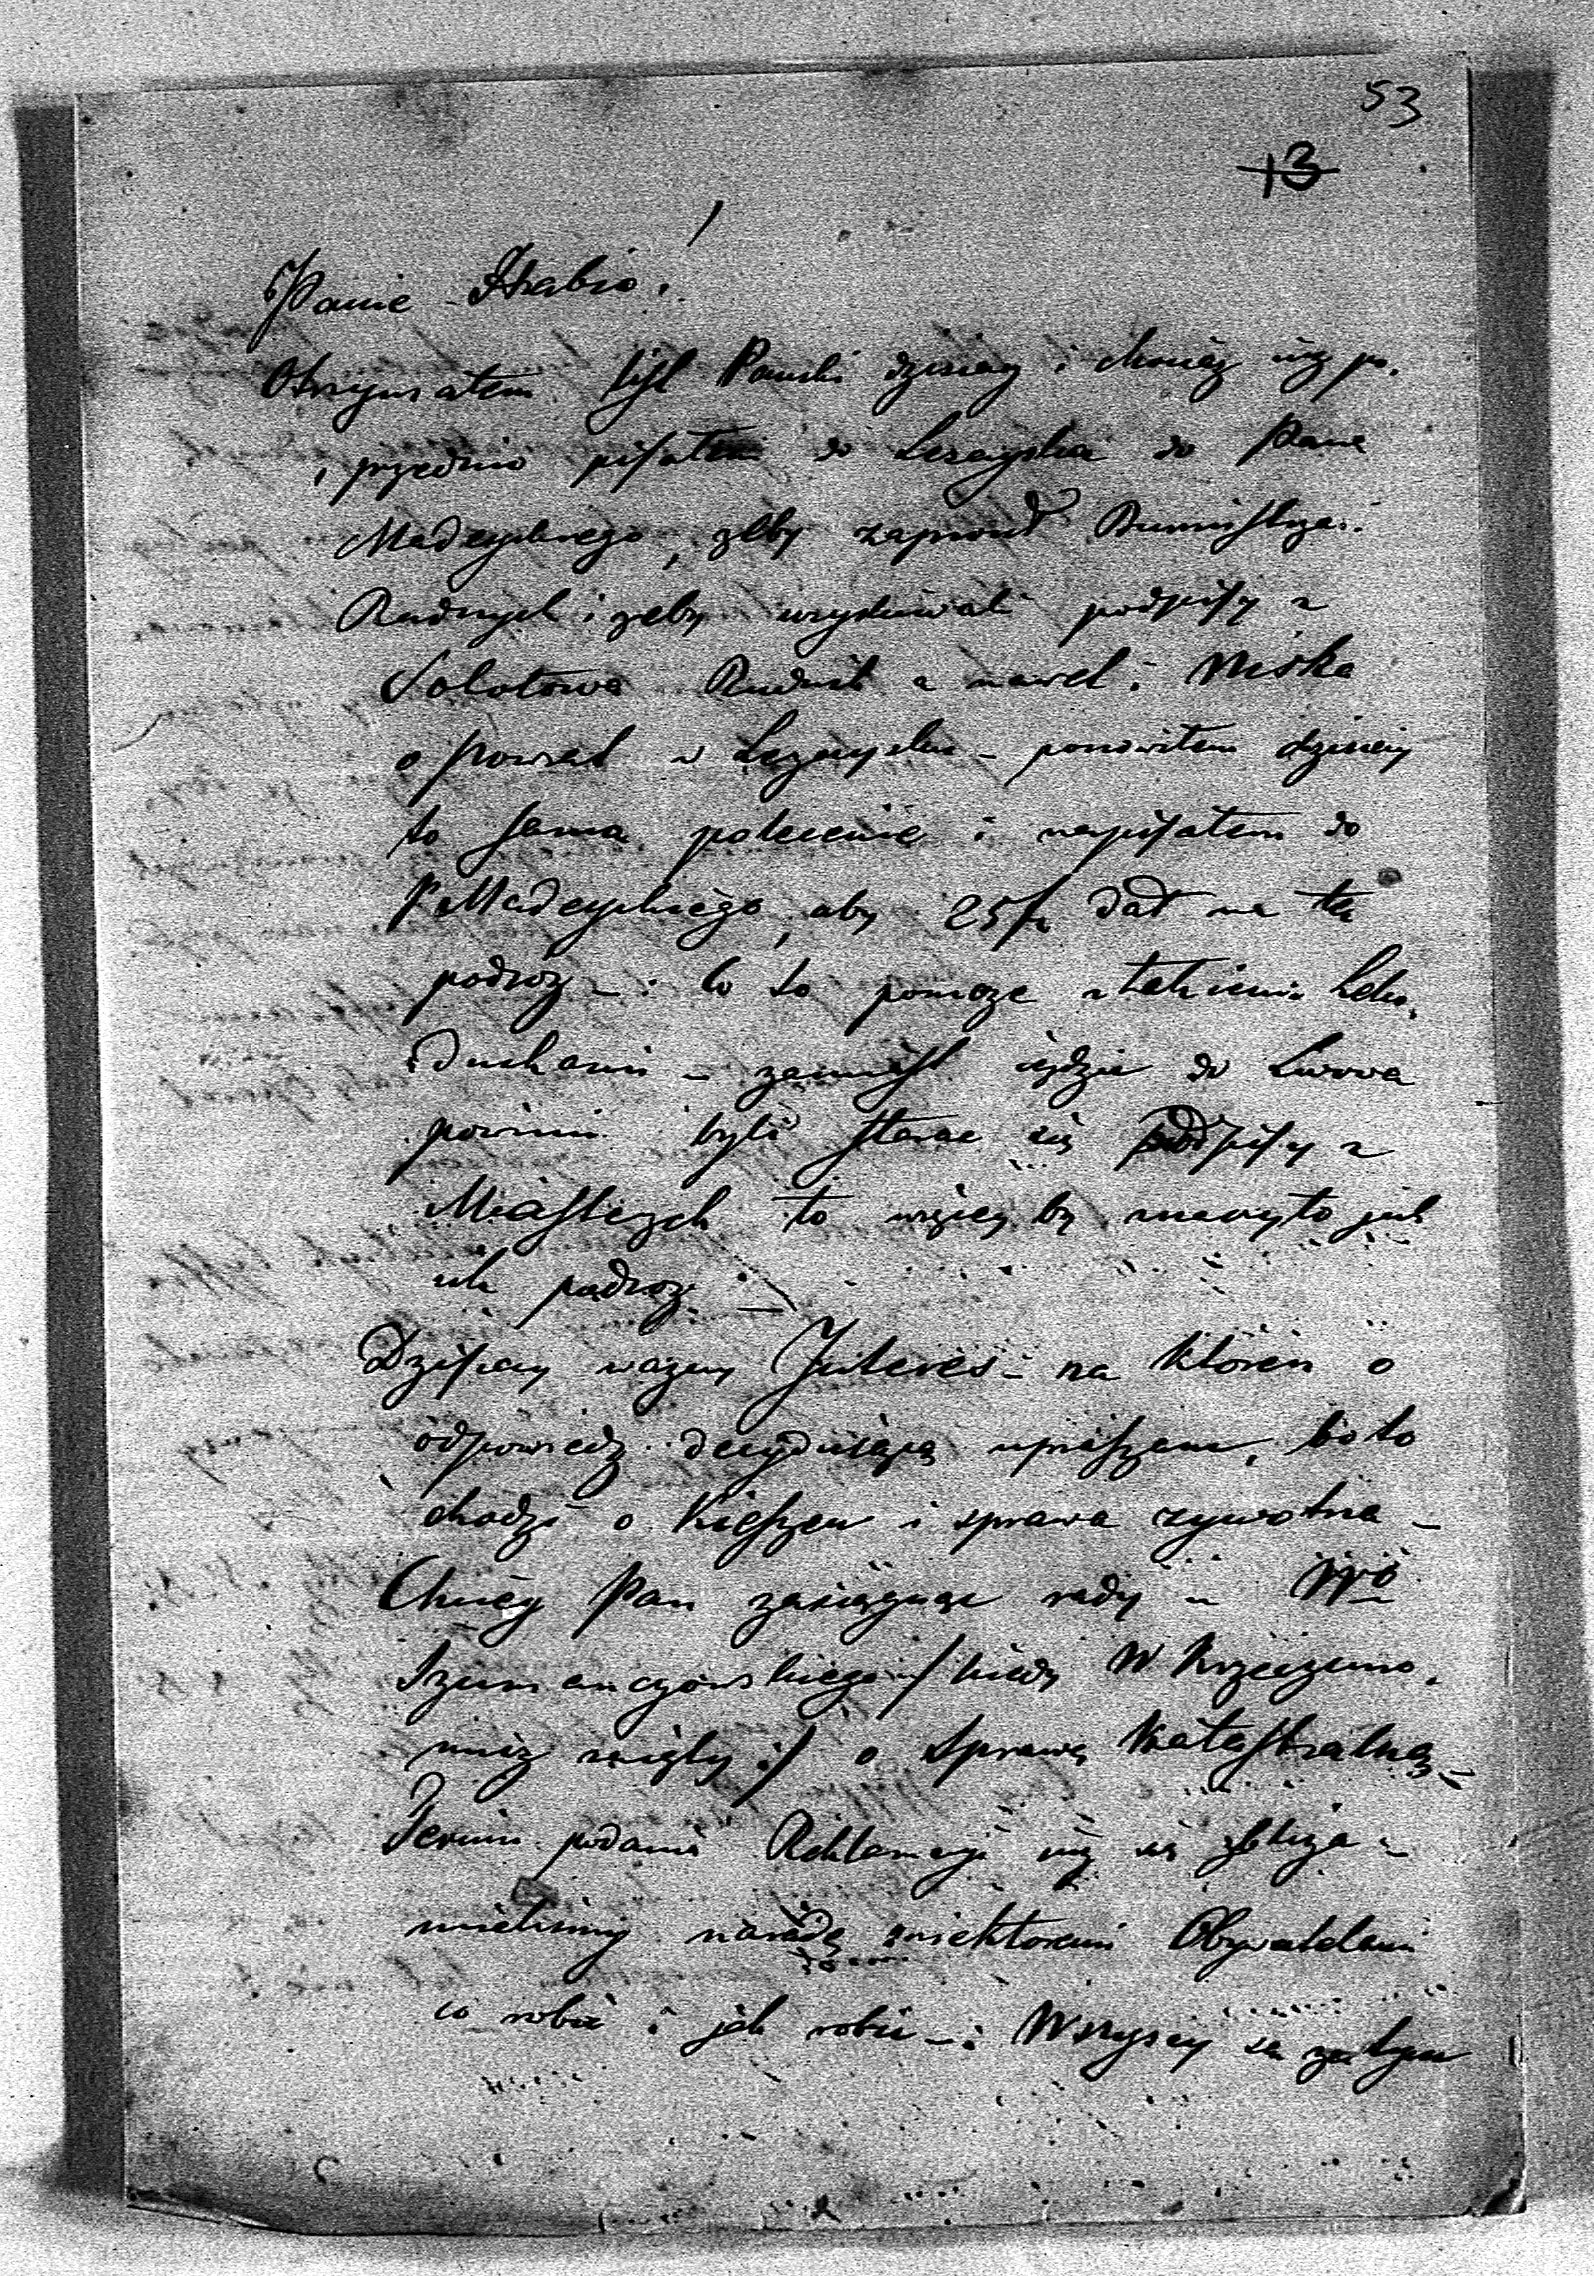 53
13
Panie Hrabio!
Otrzymałem list Pański dzisiay i chociaż już po,
przednio pisałem do Leżayska do Pana
Madeyskiego, żeby zaprosił Burmistrza
Radnych i żeby uzyskiwali podpisy z
Sokołowa Rudnik a nawet i Niska
o Powiat w Leżaysku – ponowiłem dzisiay
to samo polecenie i napisałem do
P Madeyskiego, aby 25 fr dał na tę
podróż – : Co to pomoże z takiemi
– zamiast jeździć do Lwowa
powinni byli starać się podpisy z
Miasteczek to więcey by znaczyło jak
ich podróż. –
Dzisiay ważny Interes – na ktoren o
odpowiedź decydującą upraszam, bo to
chodzi o Kieszeń i sprawa żywotna –
Chciey Pan zasięgnąć rady u WO
Szumanczowskiego / kiedy W Krzeczuno,
wicz zajęty :/ o Sprawę Katastralną –
Termin podania Reklamacyi już się zbliża –
mieliśmy naradę z niektoremi Obywatelami
co robić i jak robić – : Wszyscy są za tym